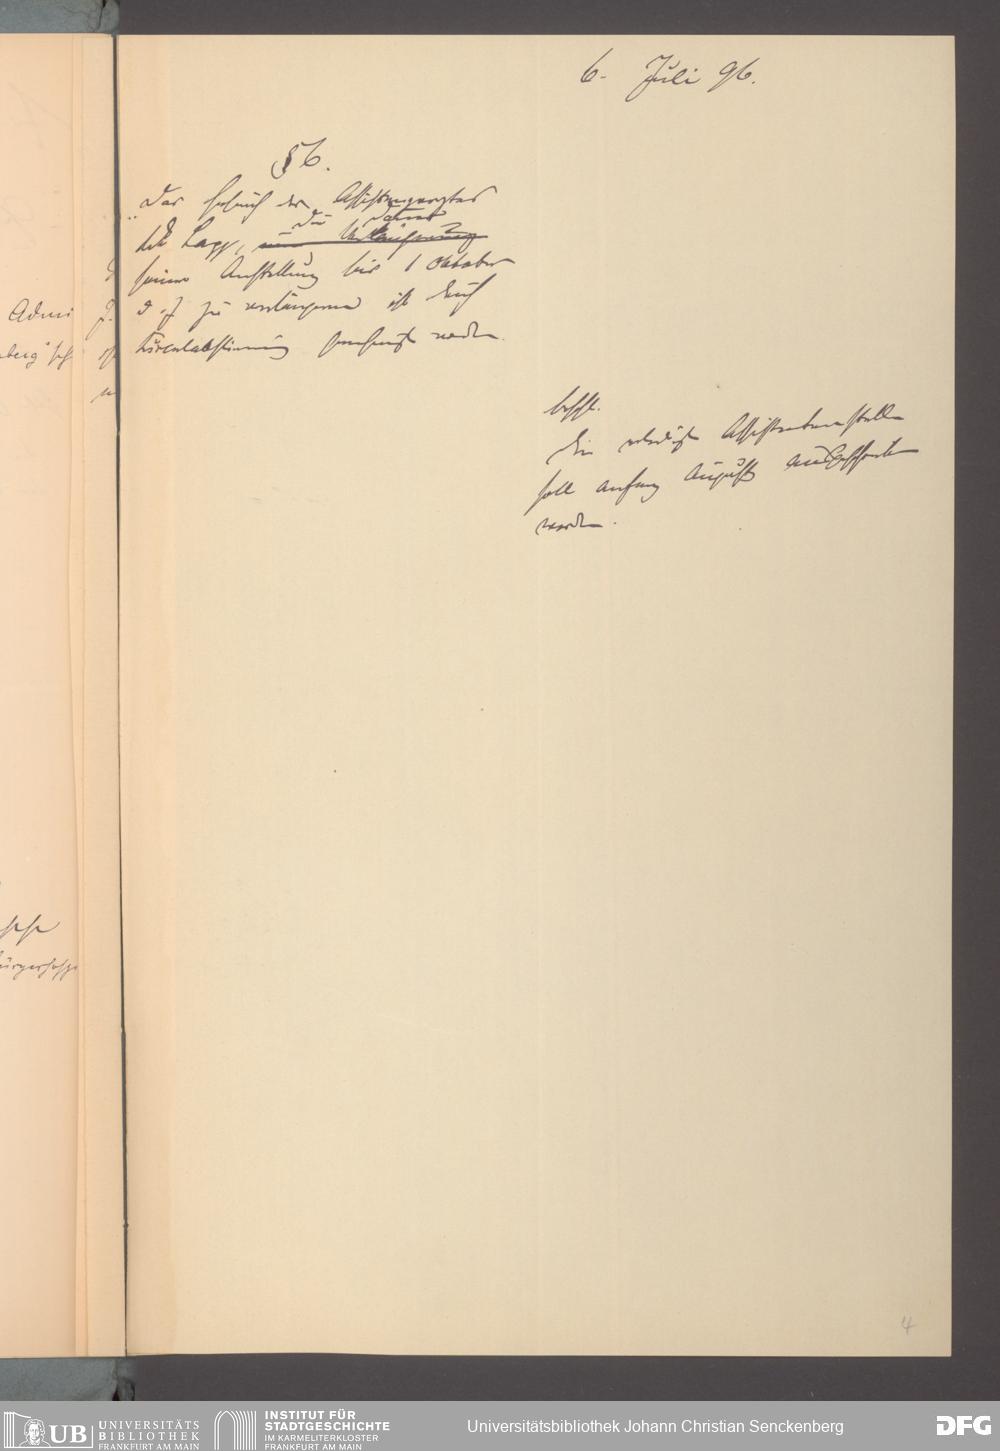 6. Juli 96.
§ 6.
Das Gesuch des Assistenzarztes
die Dauer
seiner Anstellung bis 1 Oktober
d. J zu verlängern ist durch
Zirculabstimmung genehmigt worden.
beschl.
Die erledigte Assistentenstelle
soll Anfang August ausgeschrieben
werden.
Admi
4
UB UNIVERSITÄTS
BIBLIOTHEK
FRANKFURT AM MAIN
INSTITUT FÜR
STADTGESCHICHTE
IM KARMELITERKLOSTER
FRANKFURT AM MAIN
Universitätsbibliothek Johann Christian Senckenberg
DFG